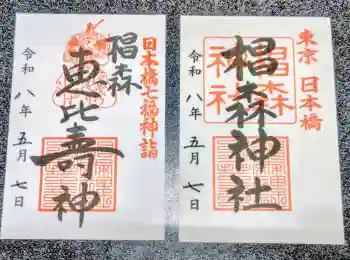 東京 日本橋
椙森神社
椙森神社
令和八年五月七日
日本橋七福神詣
椙森
恵比壽神
令和八年五月七日